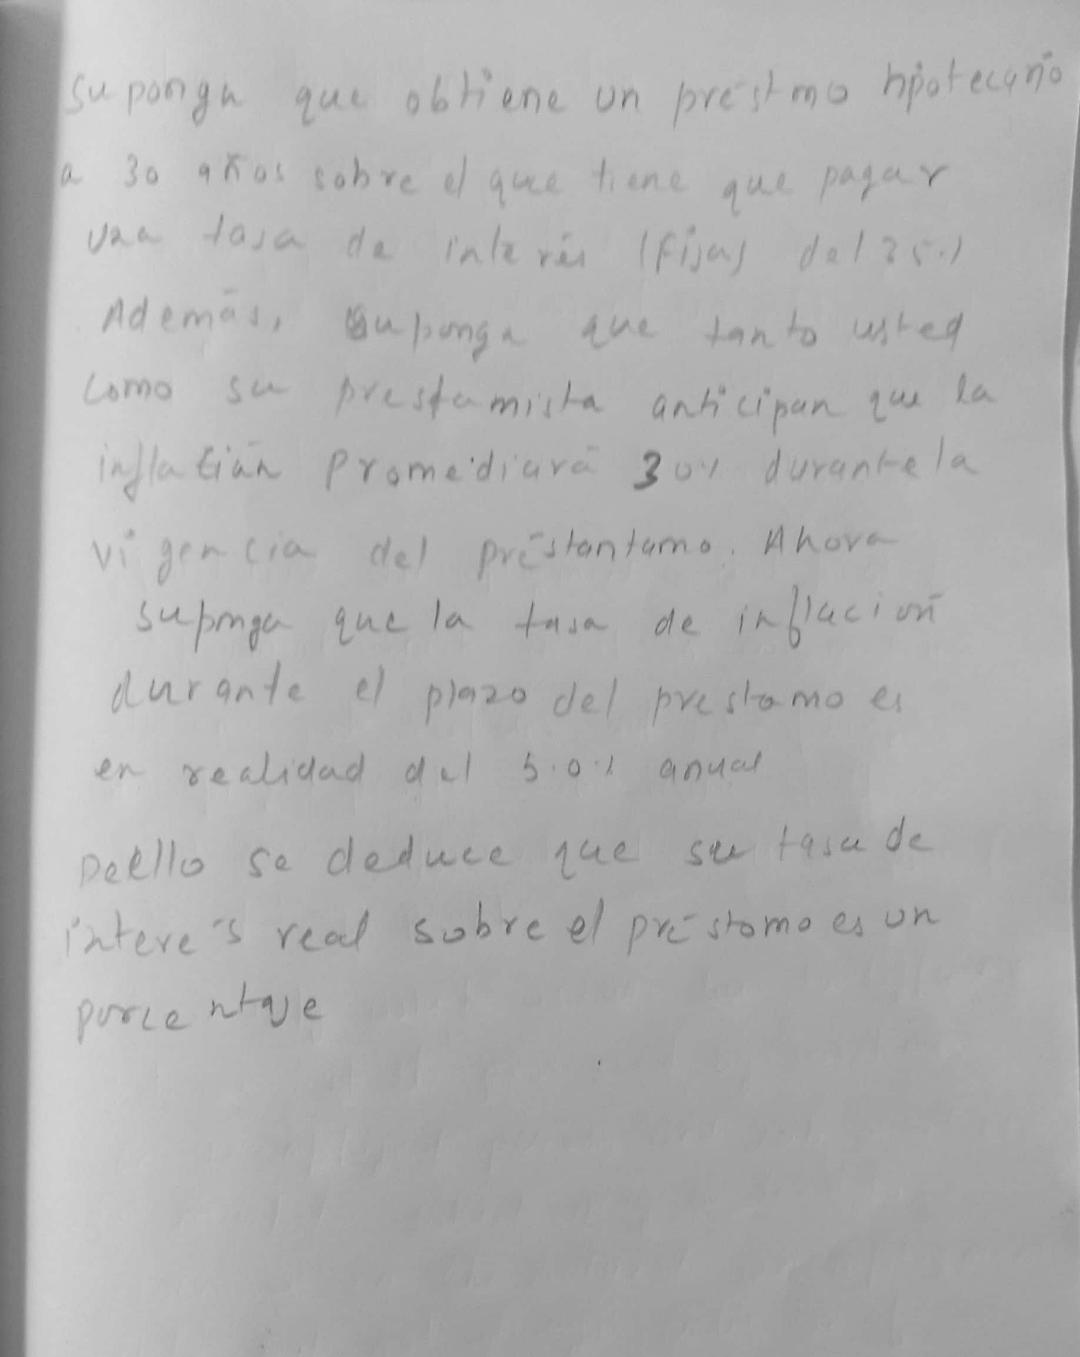 Suponga que obtiene un préstmo hipotecario
a 30 años sobre el que tiene que pagar
una tasa de interés (fija) del 35%
Además, suponga que tanto usted
como su prestamista anticipan que la
inflación Promediará 30% durante la
vigencia del préstantamo. Ahora
suponga que la tasa de inflación
durante el plazo del prestamo es
en realidad del 5.0% anual
Deello se deduce que su tasa de
interés real sobre el préstomo es un
porcentaje